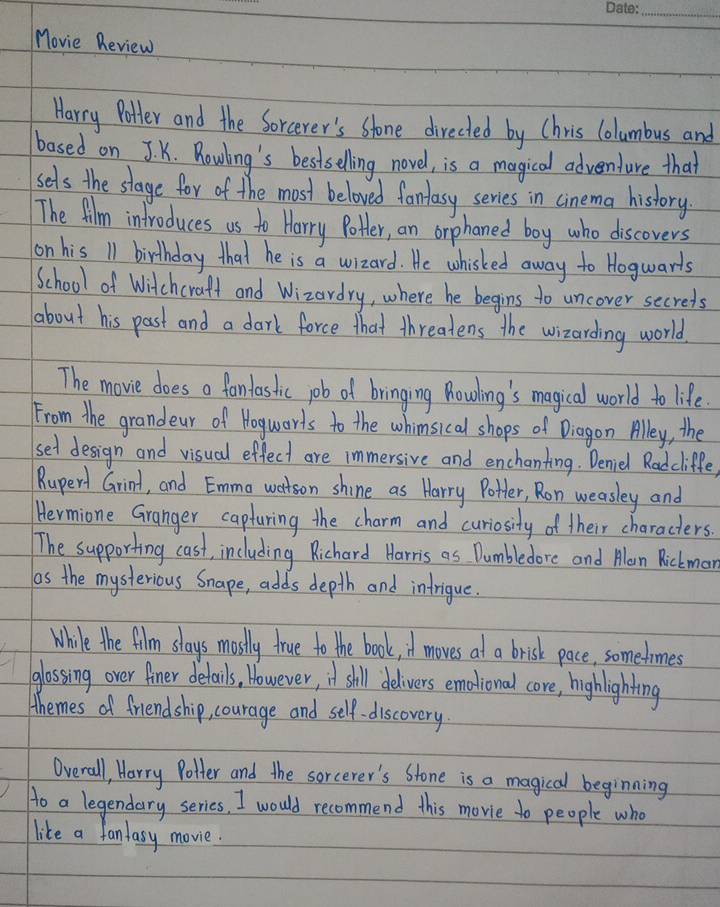 Date:
Movie Review
Harry Potter and the Sorcerer's Stone directed by Chris Columbus and
based on J.K. Rowling's bestselling novel, is a magical adventure that
sets the stage for of the most beloved fantasy series in cinema history.
The film introduces us to Harry Potter, an orphaned boy who discovers
on his 11 birthday that he is a wizard. He whisked away to Hogwarts
School of Witchcraft and Wizardry, where he begins to uncover secrets
about his past and a dark force that threatens the wizarding world.
The movie does a fantastic job of bringing Rowling's magical world to life.
From the grandeur of Hogwarts to the whimsical shops of Diagon Alley, the
set design and visual effect are immersive and enchanting. Deniel Radcliffe,
Rupert Grint, and Emma watson shine as Harry Potter, Ron weasley and
Hermione Granger capturing the charm and curiosity of their characters.
The supporting cast, including Richard Harris as Dumbledore and Alan Rickman
as the mysterious Snape, adds depth and intrigue.
While the film stays mostly true to the book, it moves at a brisk pace, sometimes
glossing over finer details. However, it still delivers emotional core, highlighting
themes of friendship, courage and self-discovery.
Overall, Harry Potter and the sorcerer's Stone is a magical beginning
to a legendary series. I would recommend this movie to people who
like a fantasy movie.